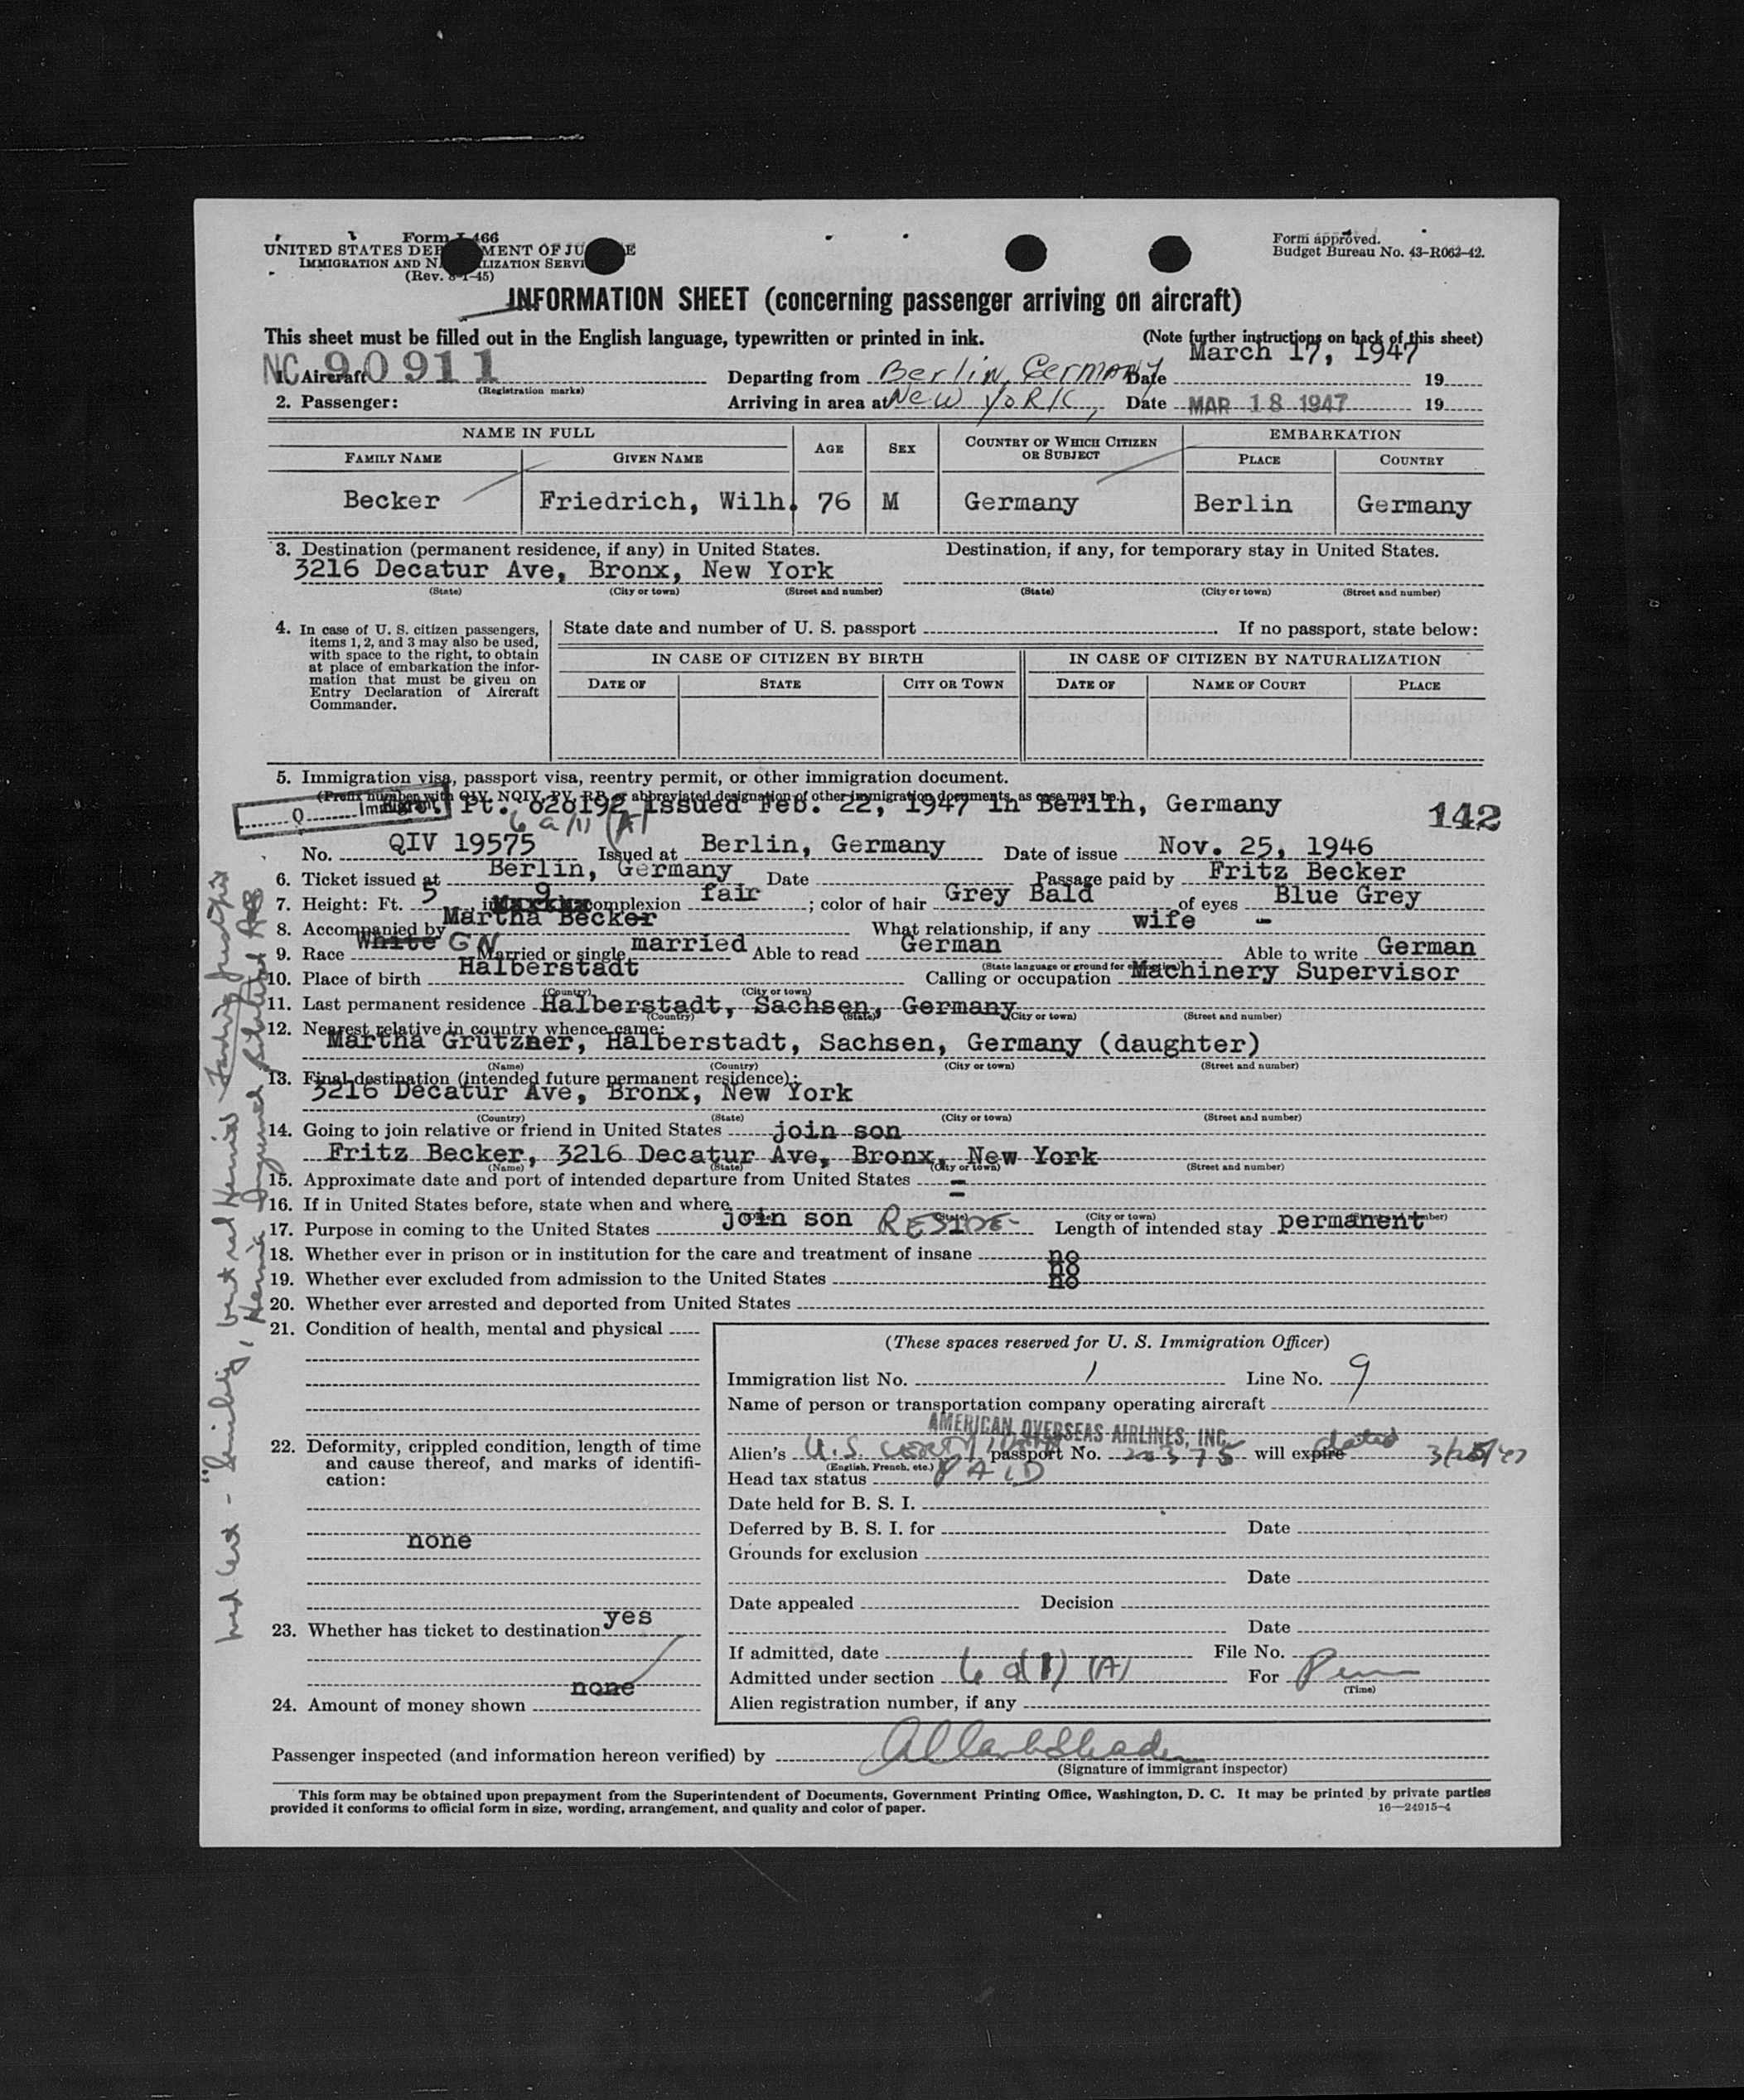 Form I-466
UNITED STATES DEPARTMENT OF JUSTICE
IMMIGRATION AND NATURALIZATION SERVICE
(Rev. 8-1-45)
Form approved.
Budget Bureau No. 43-R062-42.
INFORMATION SHEET (concerning passenger arriving on aircraft)
This sheet must be filled out in the English language, typewritten or printed in ink. (Note further instructions on back of this sheet)
1. Aircraft NC 90911 Departing from Berlin, Germany Date March 17, 1947 19
(Registration marks)
2. Passenger: Arriving in area at New York, Date MAR 18 1947 19
NAME IN FULL AGE SEX COUNTRY OF WHICH CITIZEN OR SUBJECT EMBARKATION
FAMILY NAME GIVEN NAME PLACE COUNTRY
Becker Friedrich, Wilh. 76 M Germany Berlin Germany
3. Destination (permanent residence, if any) in United States. Destination, if any, for temporary stay in United States.
3216 Decatur Ave, Bronx, New York
(State) (City or town) (Street and number) (State) (City or town) (Street and number)
4. In case of U. S. citizen passengers, items 1, 2, and 3 may also be used, with space to the right, to obtain at place of embarkation the information that must be given on Entry Declaration of Aircraft Commander.
State date and number of U. S. passport If no passport, state below:
IN CASE OF CITIZEN BY BIRTH IN CASE OF CITIZEN BY NATURALIZATION
DATE OF STATE CITY OR TOWN DATE OF NAME OF COURT PLACE
5. Immigration visa, passport visa, reentry permit, or other immigration document.
(Prefix number with QIV, NQIV, PV, RP, or abbreviated designation of other immigration documents, as case may be.)
Q Immigrant
Pt. 020192 issued Feb. 22, 1947 in Berlin, Germany
142
No. QIV 19575 Issued at Berlin, Germany Date of issue Nov. 25, 1946
6. Ticket issued at Berlin, Germany Date Passage paid by Fritz Becker
7. Height: Ft. 5, in. 9 complexion fair; color of hair Grey Bald of eyes Blue Grey
8. Accompanied by Martha Becker What relationship, if any wife -
9. Race White GN Married or single married Able to read German Able to write German
(State language or ground for exemption)
10. Place of birth Halberstadt Calling or occupation Machinery Supervisor
(Country) (City or town)
11. Last permanent residence Halberstadt, Sachsen, Germany
(Country) (State) (City or town) (Street and number)
12. Nearest relative in country whence came:
Martha Grutzner, Halberstadt, Sachsen, Germany (daughter)
(Name) (Country) (City or town) (Street and number)
13. Final destination (intended future permanent residence):
3216 Decatur Ave, Bronx, New York
(Country) (State) (City or town) (Street and number)
14. Going to join relative or friend in United States join son
Fritz Becker, 3216 Decatur Ave, Bronx, New York
(Name) (State) (City or town) (Street and number)
15. Approximate date and port of intended departure from United States -
16. If in United States before, state when and where -
(State) (City or town) (Street and number)
17. Purpose in coming to the United States join son RESIDE Length of intended stay permanent
18. Whether ever in prison or in institution for the care and treatment of insane no
19. Whether ever excluded from admission to the United States no
20. Whether ever arrested and deported from United States no
21. Condition of health, mental and physical
22. Deformity, crippled condition, length of time and cause thereof, and marks of identification:
none
23. Whether has ticket to destination yes
24. Amount of money shown none
(These spaces reserved for U. S. Immigration Officer)
Immigration list No. 1 Line No. 9
Name of person or transportation company operating aircraft
AMERICAN OVERSEAS AIRLINES, INC.
Alien's U.S. passport No. will expire dated
(English, French, etc.)
Head tax status PAID
Date held for B. S. I.
Deferred by B. S. I. for Date
Grounds for exclusion
Date
Date appealed Decision
Date
If admitted, date File No.
Admitted under section 6 a(1) (A) For Perm
(Time)
Alien registration number, if any
Passenger inspected (and information hereon verified) by
(Signature of immigrant inspector)
This form may be obtained upon prepayment from the Superintendent of Documents, Government Printing Office, Washington, D. C. It may be printed by private parties
provided it conforms to official form in size, wording, arrangement, and quality and color of paper. 16—24915-4